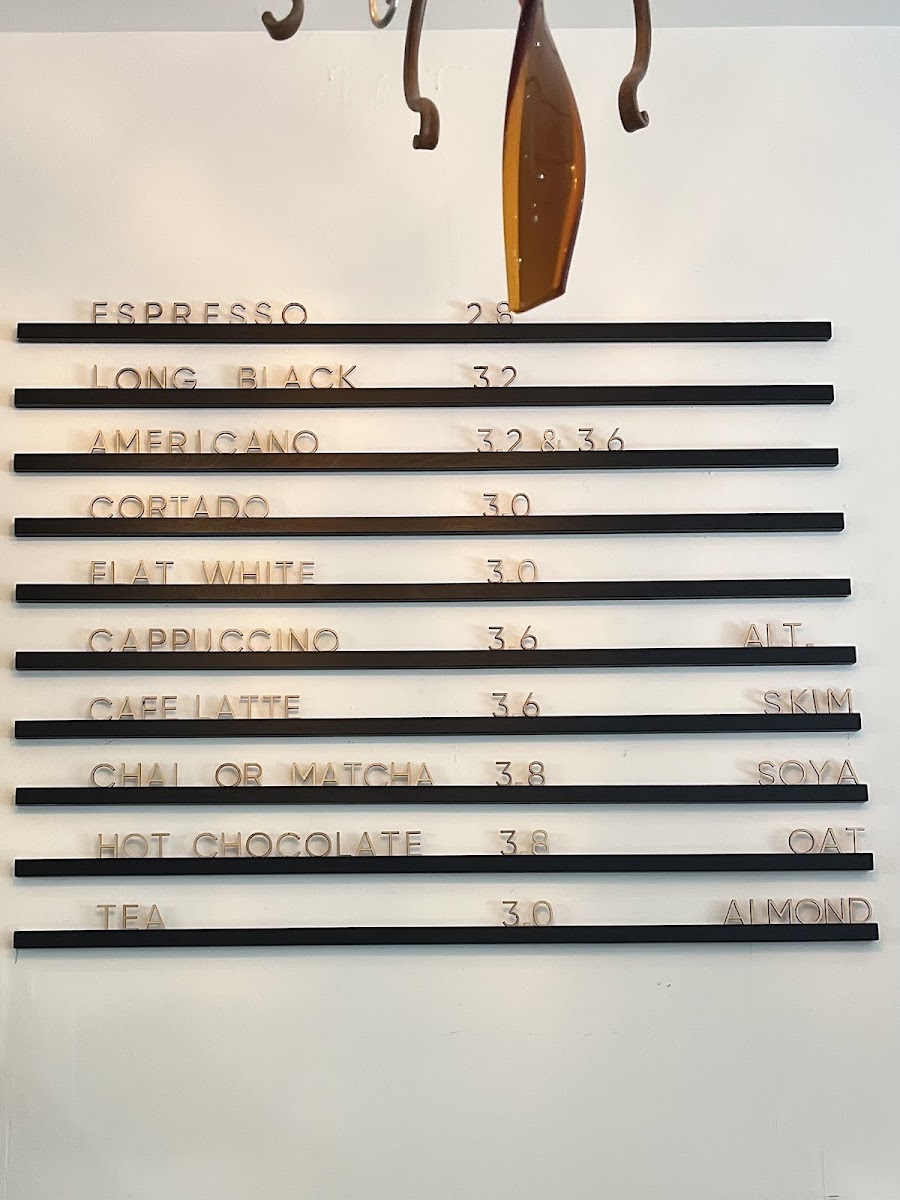 ESPRESSO 2.8
LONG BLACK 3.2
AMERICANO 3.2 & 3.6
CORTADO 3.0
FLAT WHITE 3.0
CAPPUCCINO 3.6 ALT.
CAFE LATTE 3.6 SKIM
CHAI OR MATCHA 3.8 SOYA
HOT CHOCOLATE 3.8 OAT
TEA 3.0 ALMOND